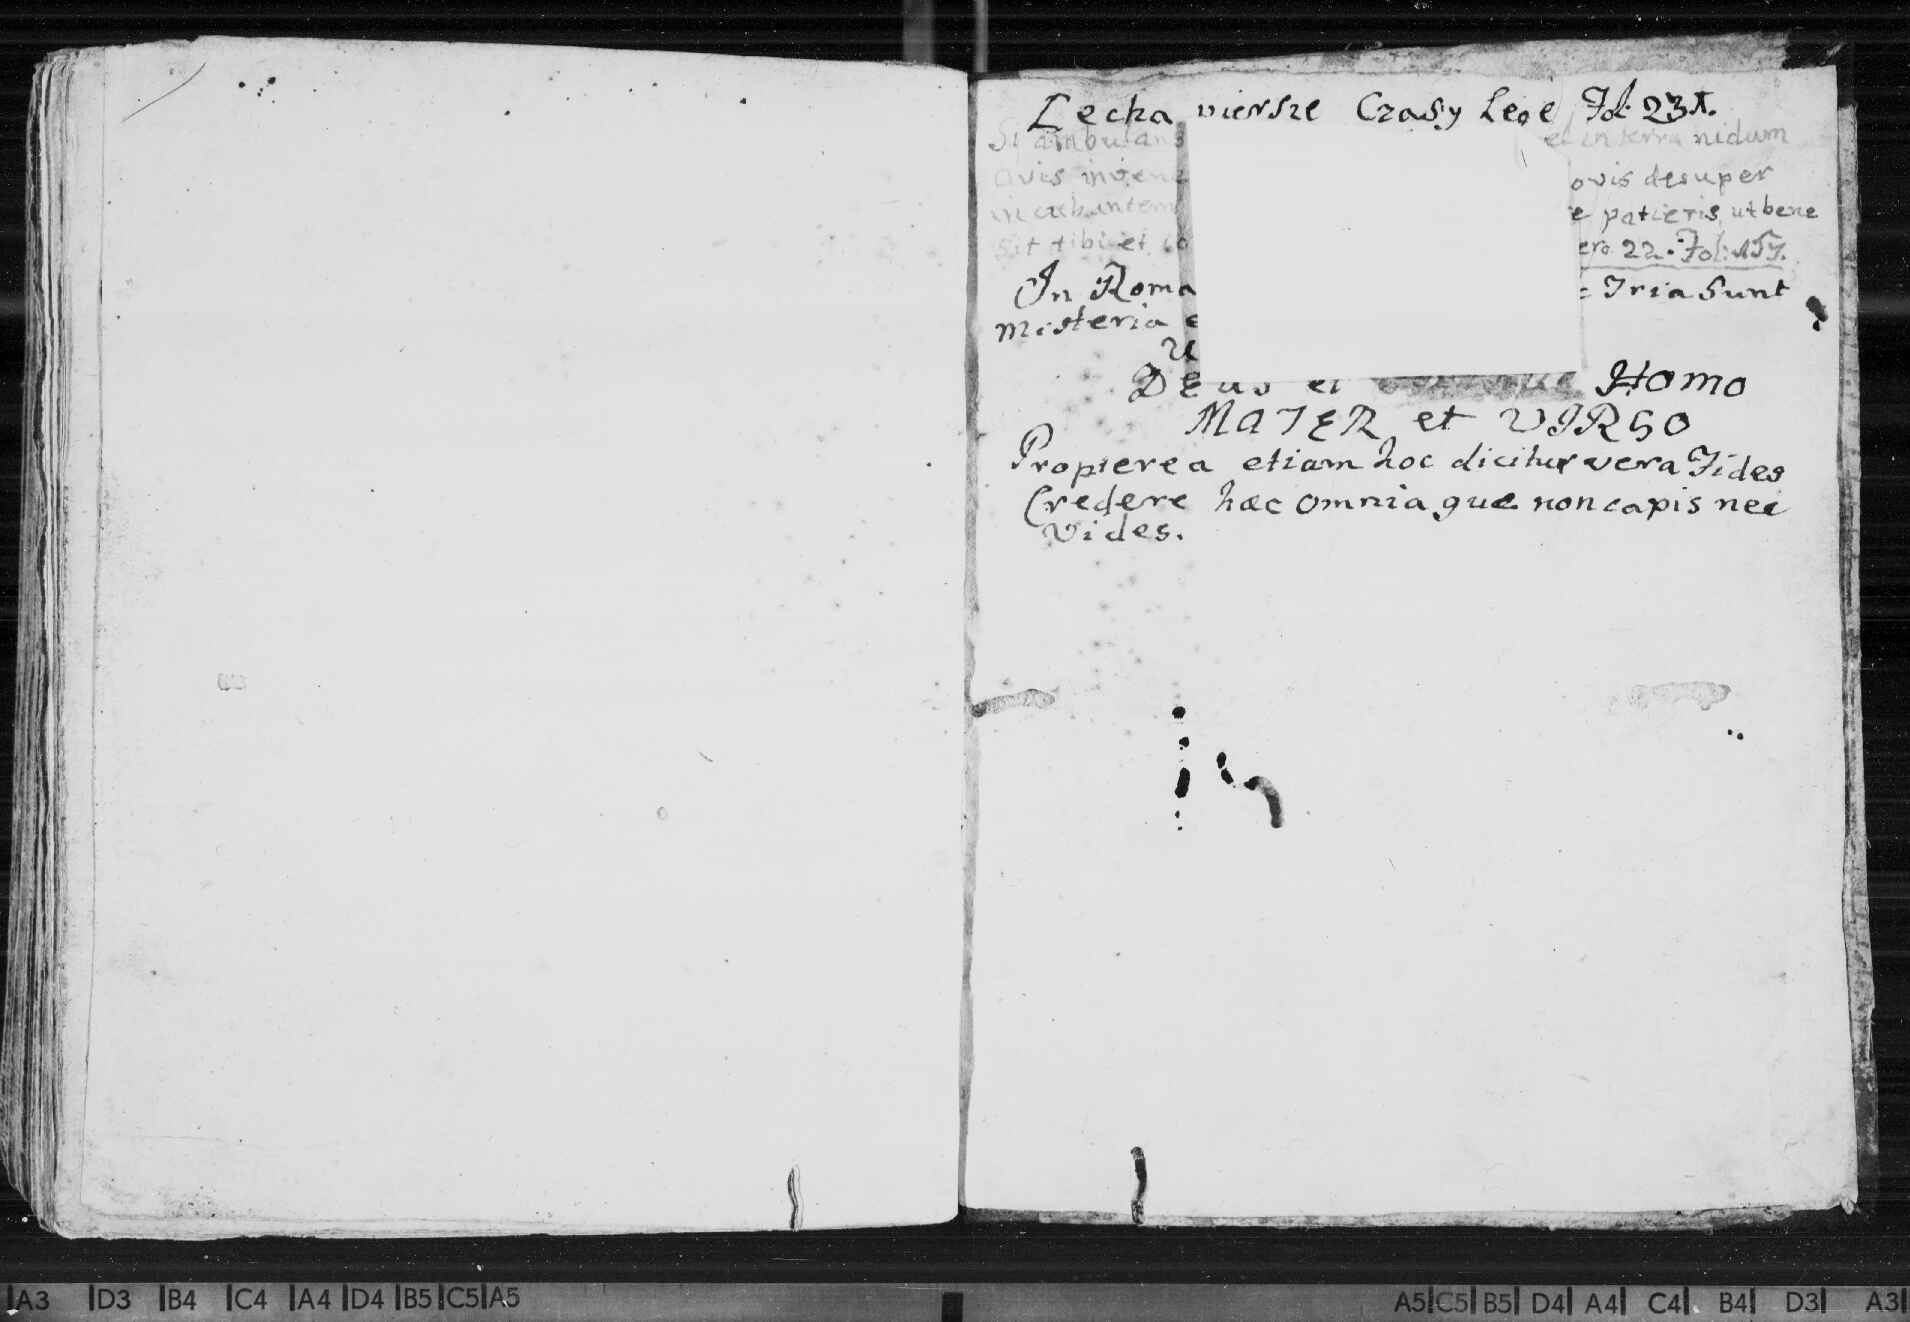 Lecha viersze Czasy Lege Fol: 231.
Si ambulans et in terra nidum
avis invene ovis desuper
incubantem e patieris, ut bene
sit tibi et ero 22. Fol: 157.
In Roma : Tria Sunt
misteria
Deus et Homo
MATER et VIRGO
Propterea etiam hoc dicitur vera Fides
Credere hæc omnia quæ non capis nec
vides.
A3 D3 B4 C4 A4 D4 B5 C5 A5 A5 C5 B5 D4 A4 C4 B4 D3 A3